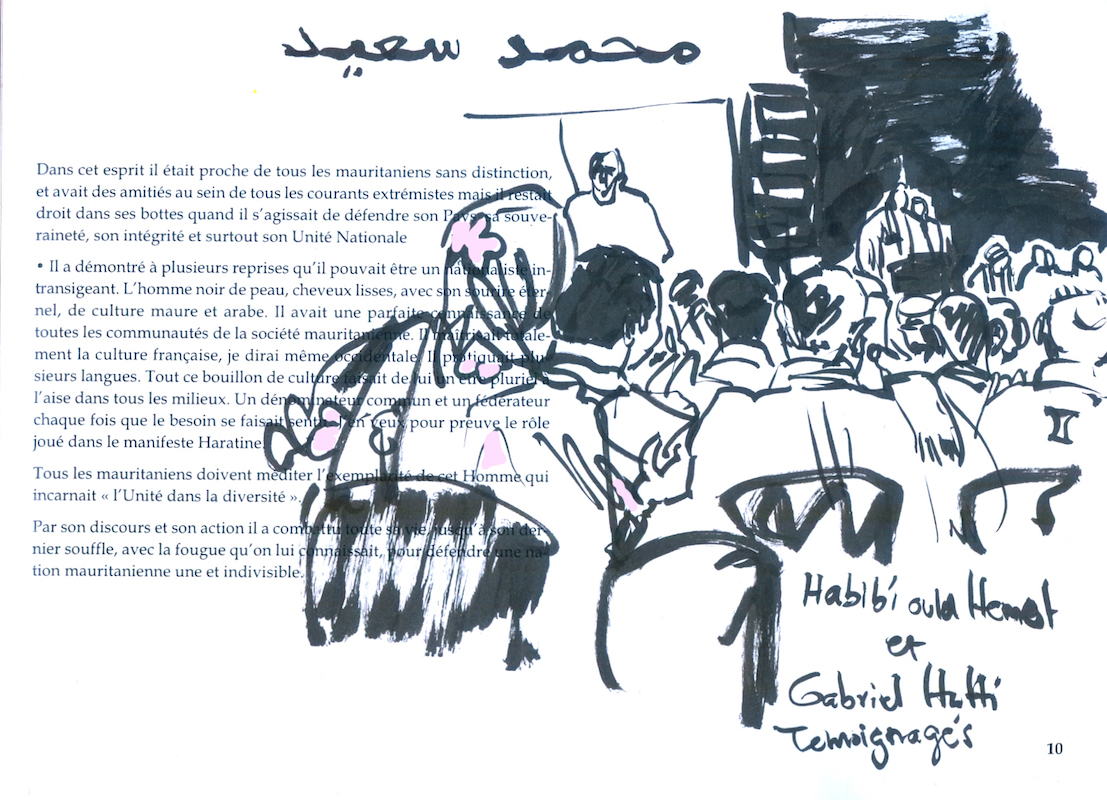 محمد سعيد
Dans cet esprit il était proche de tous les mauritaniens sans distinction,
et avait des amitiés au sein de tous les courants extrémistes mais il restait
droit dans ses bottes quand il s’agissait de défendre son Pays, sa souve-
raineté, son intégrité et surtout son Unité Nationale
• Il a démontré à plusieurs reprises qu’il pouvait être un nationaliste in-
transigeant. L’homme noir de peau, cheveux lisses, avec son sourire éter-
nel, de culture maure et arabe. Il avait une parfaite connaissance de
toutes les communautés de la société mauritanienne. Il maîtrisait totale-
ment la culture française, je dirai même occidentale. Il pratiquait plu-
sieurs langues. Tout ce bouillon de culture faisait de lui un être pluriel à
l’aise dans tous les milieux. Un dénominateur commun et un fédérateur
chaque fois que le besoin se faisait sentir. J’en veux pour preuve le rôle
joué dans le manifeste Haratine.
Tous les mauritaniens doivent méditer l’exemplarité de cet Homme qui
incarnait « l’Unité dans la diversité ».
Par son discours et son action il a combattu toute sa vie, jusqu’à son der-
nier souffle, avec la fougue qu’on lui connaissait, pour défendre une na-
tion mauritanienne une et indivisible.
Habib'i ould
et
Gabriel
Temoignagés
10